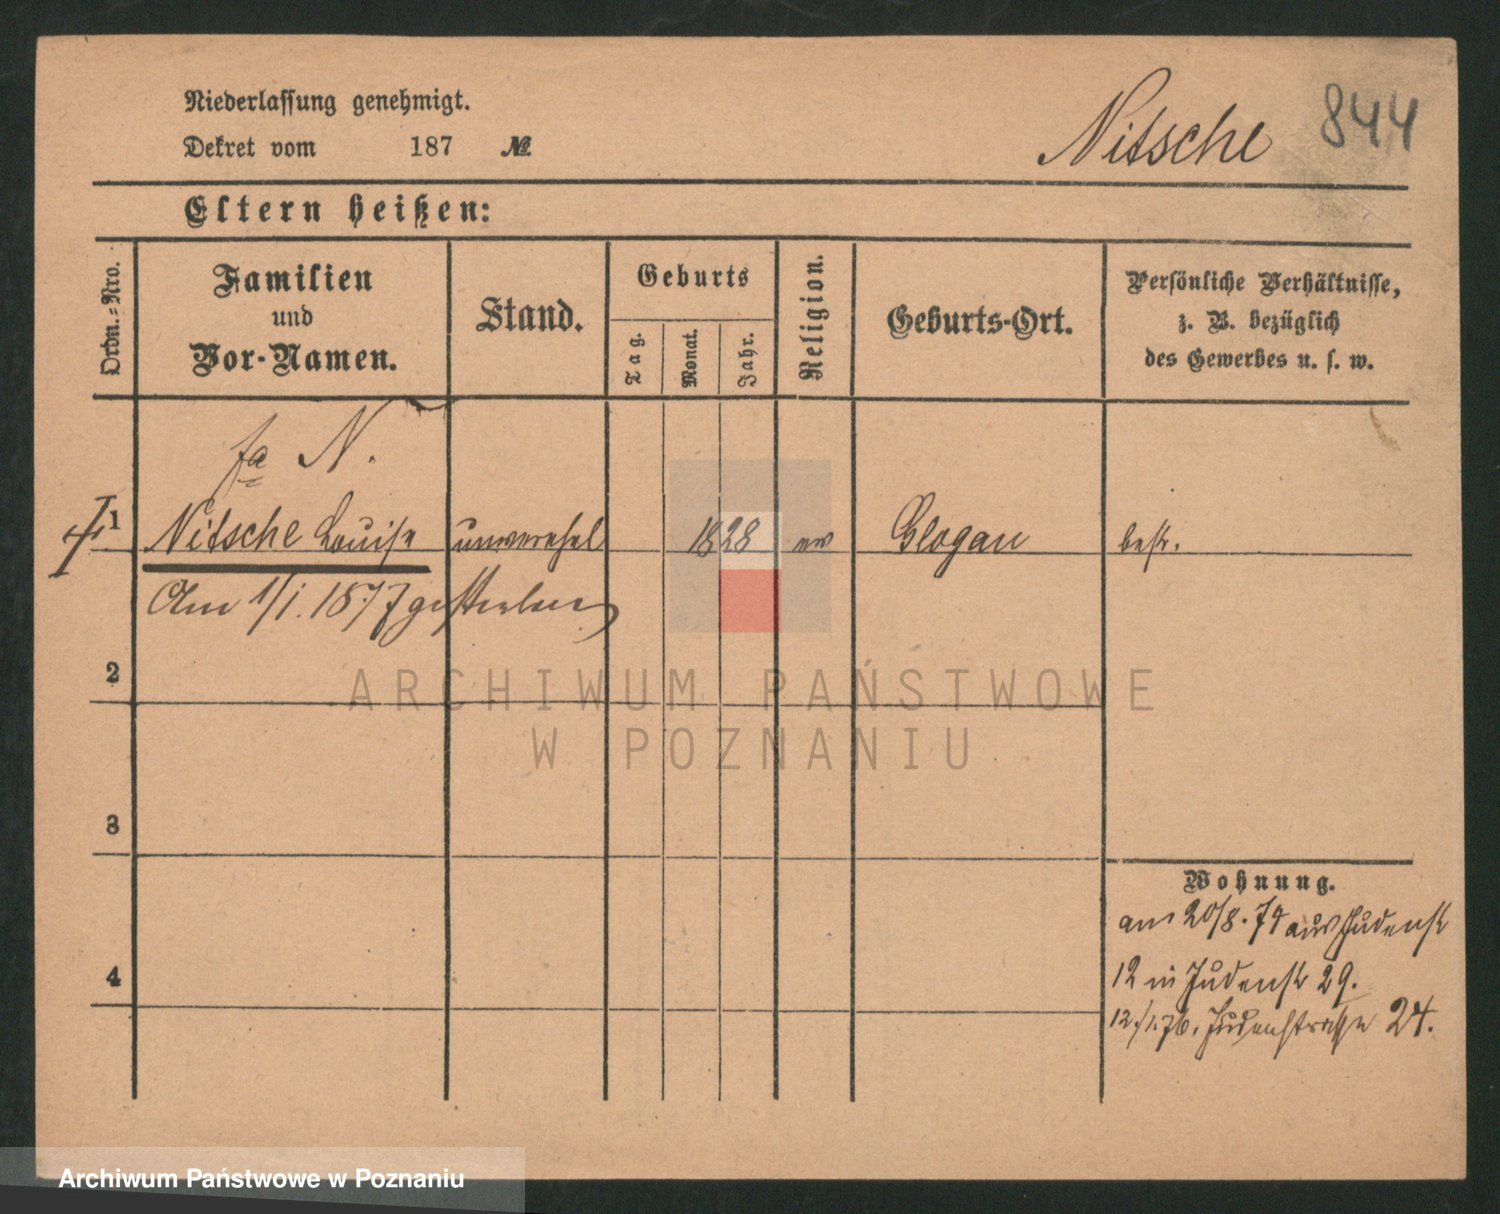 Niederlassung genehmigt.
Dekret vom 187 №
Nitsche 844
Eltern heißen:
Ordn.-Nro.
Familien
und
Vor-Namen.
Stand.
Geburts
Tag.
Monat.
Jahr.
Religion.
Geburts-Ort.
Persönliche Verhältnisse,
z. B. bezüglich
des Gewerbes u. s. w.
N.
1 Nitsche Louise unverehel 1828 ev Glogau
Am 1/1. 1877 gestorben
2
3
4
Wohnung.
am 20/8. 74 aus Judenstr
12 in Judenstr 29.
12./1.76. Judenstrasse 24.
ARCHIWUM PAŃSTWOWE
W POZNANIU
Archiwum Państwowe w Poznaniu